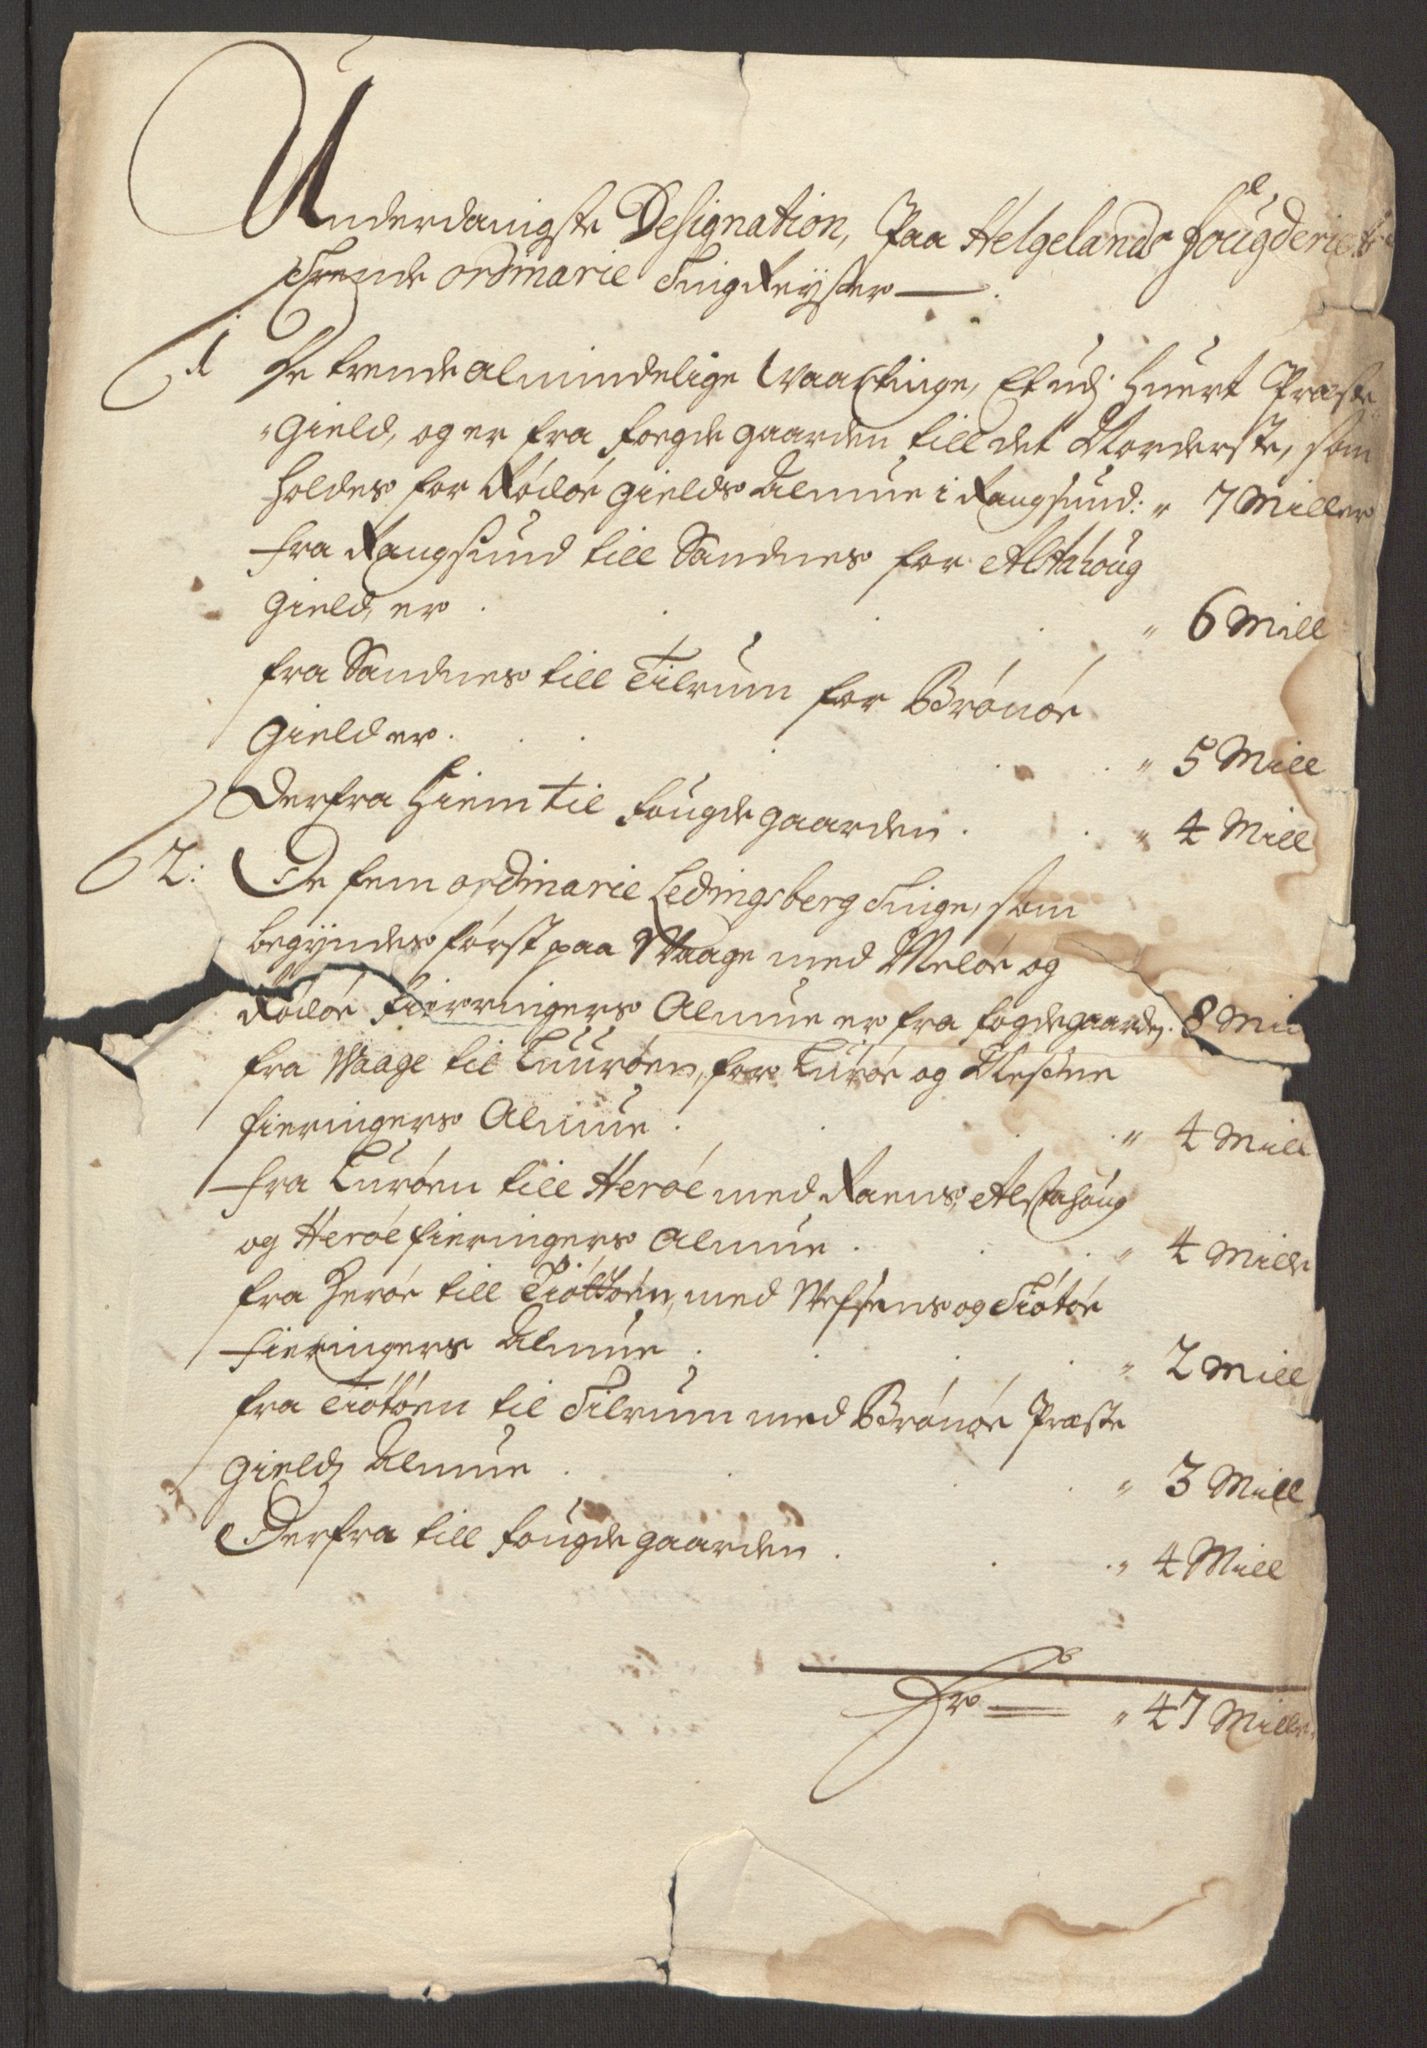 Underdanigste Designation, Paa Helgelands Fougderies
Trende ordinarie TingReyser
1 De trende almindelige Waartinge, Et udj huert Præste
gield, og er fra foegde gaarden till det Norderste, som
holdes for Rödöe gields Almue i Rangsund: " 7 Miller
fra Rangsund till Sandnes for Alstahoug
gield, er " 6 Mill
fra Sandnes till Tilrum for Brönöe
gield er " 5 Mill
Derfra Hiem til fougde gaarden " 4 Mill
2: De fem ordinarie Ledingsberg Tinge, som
begyndes först paa Waage med Melöe og
Rödöe fierringers Almue er fra fogdegaarden 8 Mil
fra Waage til Luuröen, for Luröe og Nesche
fieringers Almue " 4 Mill
fra Luröen till Heröe med Raens, Alstahoug
og Heröe fieringers Almue " 4 Mille
fra Heröe till Tiöttöen, med Wefsens og Tiötöe
fieringers Almue " 2 Mill
fra Tiötöen til Tilrum med Brönöe Præste
gieldz Almue " 3 Mill
Derfra till fougde gaarden " 4 Mill
Er " 47 Mille